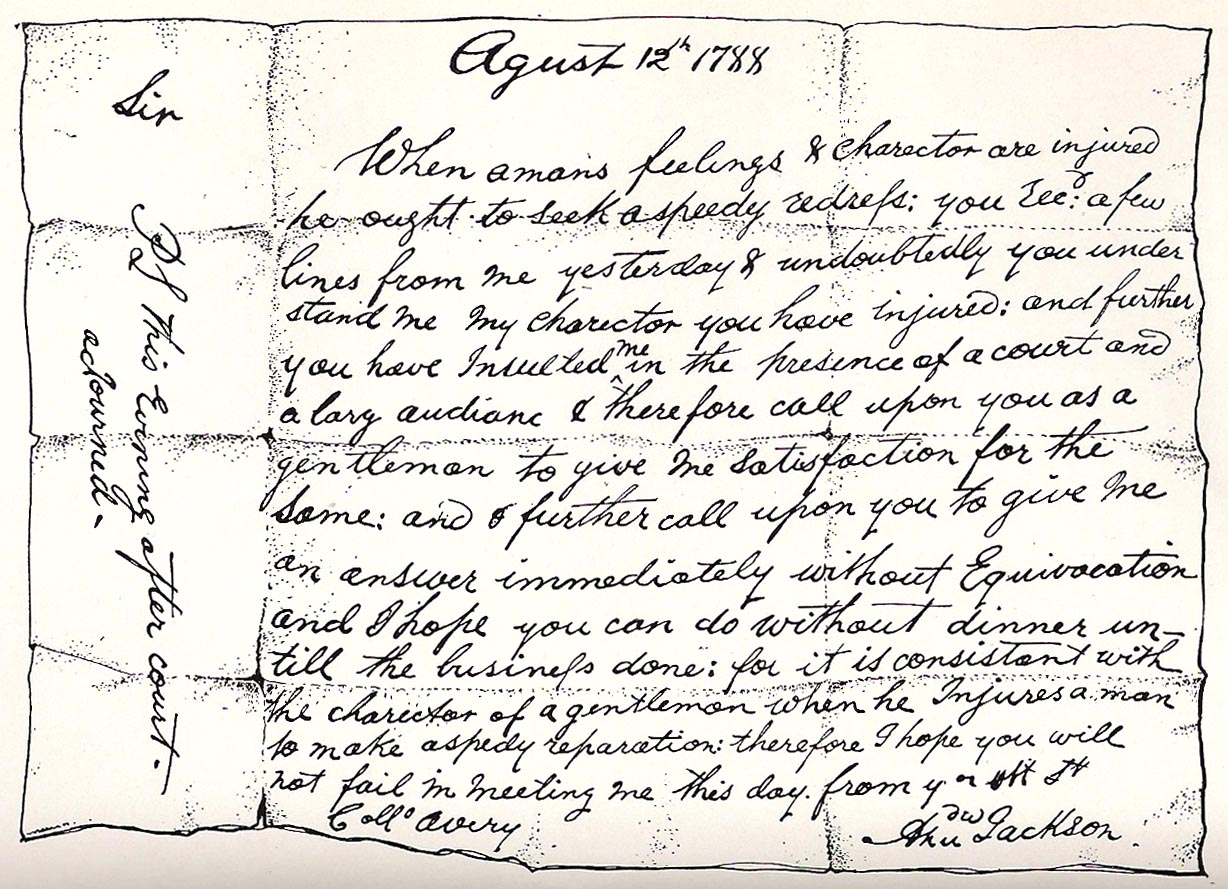 Agust 12th 1788
Sir
When amans feelings & charector are injured
he ought to seek aspeedy redress: you recd: a few
lines from me yesterday & undoubtedly you under
stand me My charector you have injured: and further
you have Insulted me in the presence of a court and
a larg audianc & therefore call upon you as a
gentleman to give me satisfaction for the
Same: and further call upon you to give Me
an answer immediately without Equivocation
and I hope you can do without dinner un-
till the business done: for it is consistant with
the charector of a gentleman when he Injures a man
to make aspedy reparation: therefore I hope you will
not fail in meeting me this day. from yr
Collo Avery
Andw Jackson.
PS This Evining after court.
adourned.